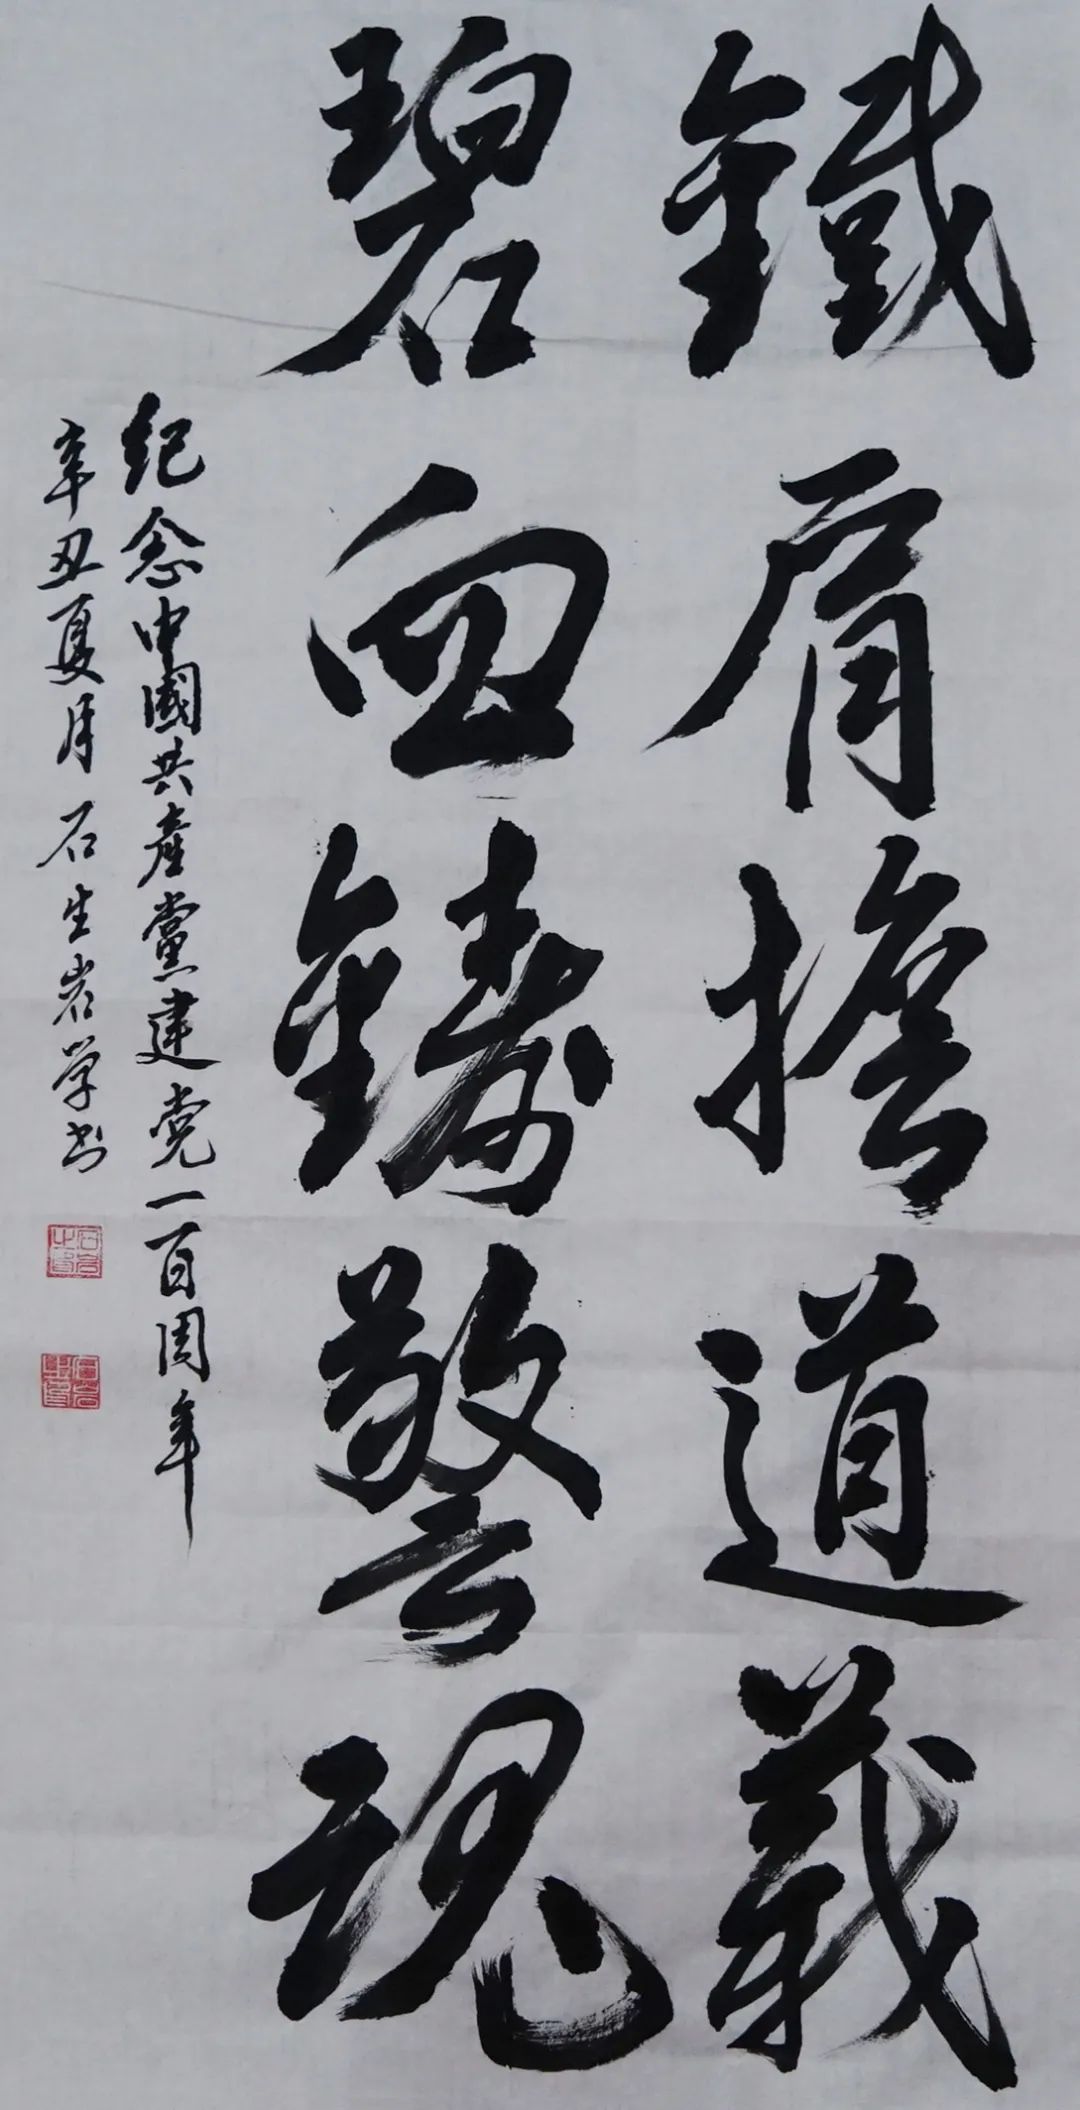 鐵肩擔道義
碧血鑄警魂
紀念中國共產黨建党一百周年
辛丑夏月石生岩学书